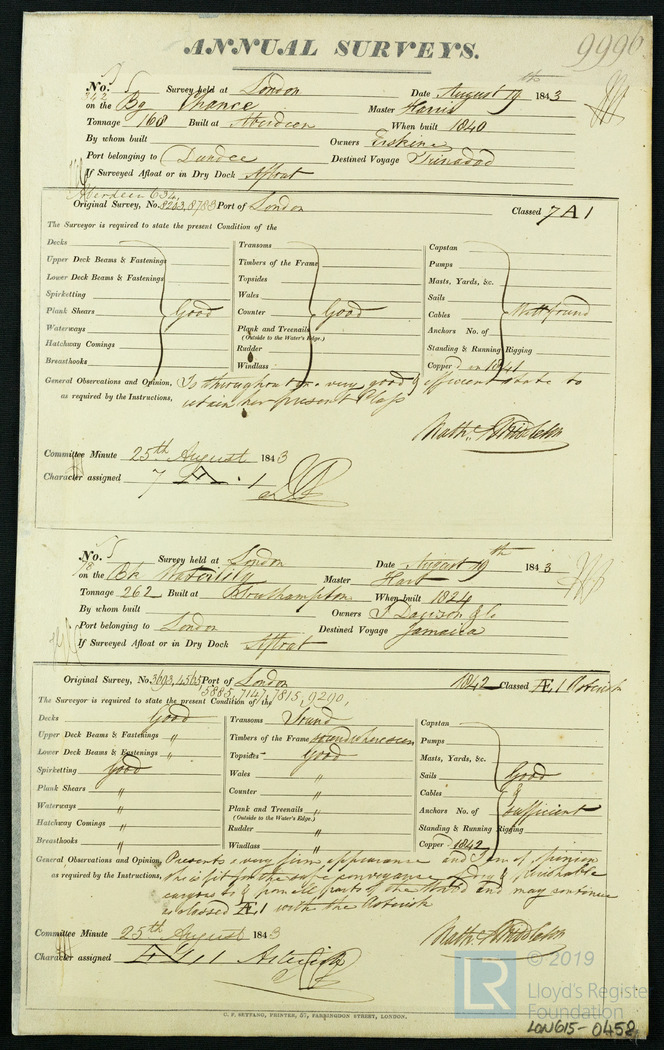 ANNUAL SURVEYS.
9996
No. 5 Survey held at London Date August 19th 1843
742
on the Bg Chance Master Harris
Tonnage 168 Built at Aberdeen When built 1840
By whom built Owners Erskine
Port belonging to Dundee Destined Voyage Trinadad
If Surveyed Afloat or in Dry Dock Afloat
Aberdeen 634,
Original Survey, No. 8243, 8783 Port of London Classed 7 A 1
The Surveyor is required to state the present Condition of the
Decks
Upper Deck Beams & Fastenings
Lower Deck Beams & Fastenings
Spirketting
Plank Shears
Waterways
Hatchway Comings
Breasthooks
Good
Transoms
Timbers of the Frame
Topsides
Wales
Counter
Plank and Treenails
(Outside to the Water's Edge.)
Rudder
Windlass
Good
Capstan
Pumps
Masts, Yards, &c.
Sails
Cables
Anchors No. of
Standing & Running Rigging
Copper'd in 1841
Well found
General Observations and Opinion, Is throughout in a very good & efficient state to
as required by the Instructions, retain her present Class
Nathl. Middleton
Committee Minute 25th August 1843
Character assigned 7 A . 1
No. 5 Survey held at London Date August 19th 1843
78
on the Bk Master Hart
Tonnage 262 Built at Northampton When built 1824
By whom built Owners J Davison & Co
Port belonging to London Destined Voyage Jamaica
If Surveyed Afloat or in Dry Dock Afloat
Original Survey, No. 3693, 4565 Port of London 1842 Classed Æ 1 Asterisk
5885, 7147, 7815, 9290,
The Surveyor is required to state the present Condition of the
Decks Good
Upper Deck Beams & Fastenings "
Lower Deck Beams & Fastenings "
Spirketting Good
Plank Shears "
Waterways "
Hatchway Comings "
Breasthooks "
Transoms Sound
Timbers of the Frame sound where seen
Topsides Good
Wales "
Counter "
Plank and Treenails "
(Outside to the Water's Edge.)
Rudder "
Windlass "
Capstan
Pumps
Masts, Yards, &c.
Sails
Cables
Anchors No. of
Standing & Running Rigging
Copper'd 1842
Good
&
Sufficient
General Observations and Opinion, Presents a very firm appearance and I am of opinion
as required by the Instructions, she is fit for the safe conveyance of dry & perishable
cargoes to & from all parts of the World and may continue
as classed Æ 1 with the Asterisk
Nathl. Middleton
Committee Minute 25th August 1843
Character assigned Æ 1 Asterisk
C. F. SEYFANG, PRINTER, 57, FARRINGDON STREET, LONDON.
© 2019
LR
Lloyd's Register
Foundation
LON615-0452